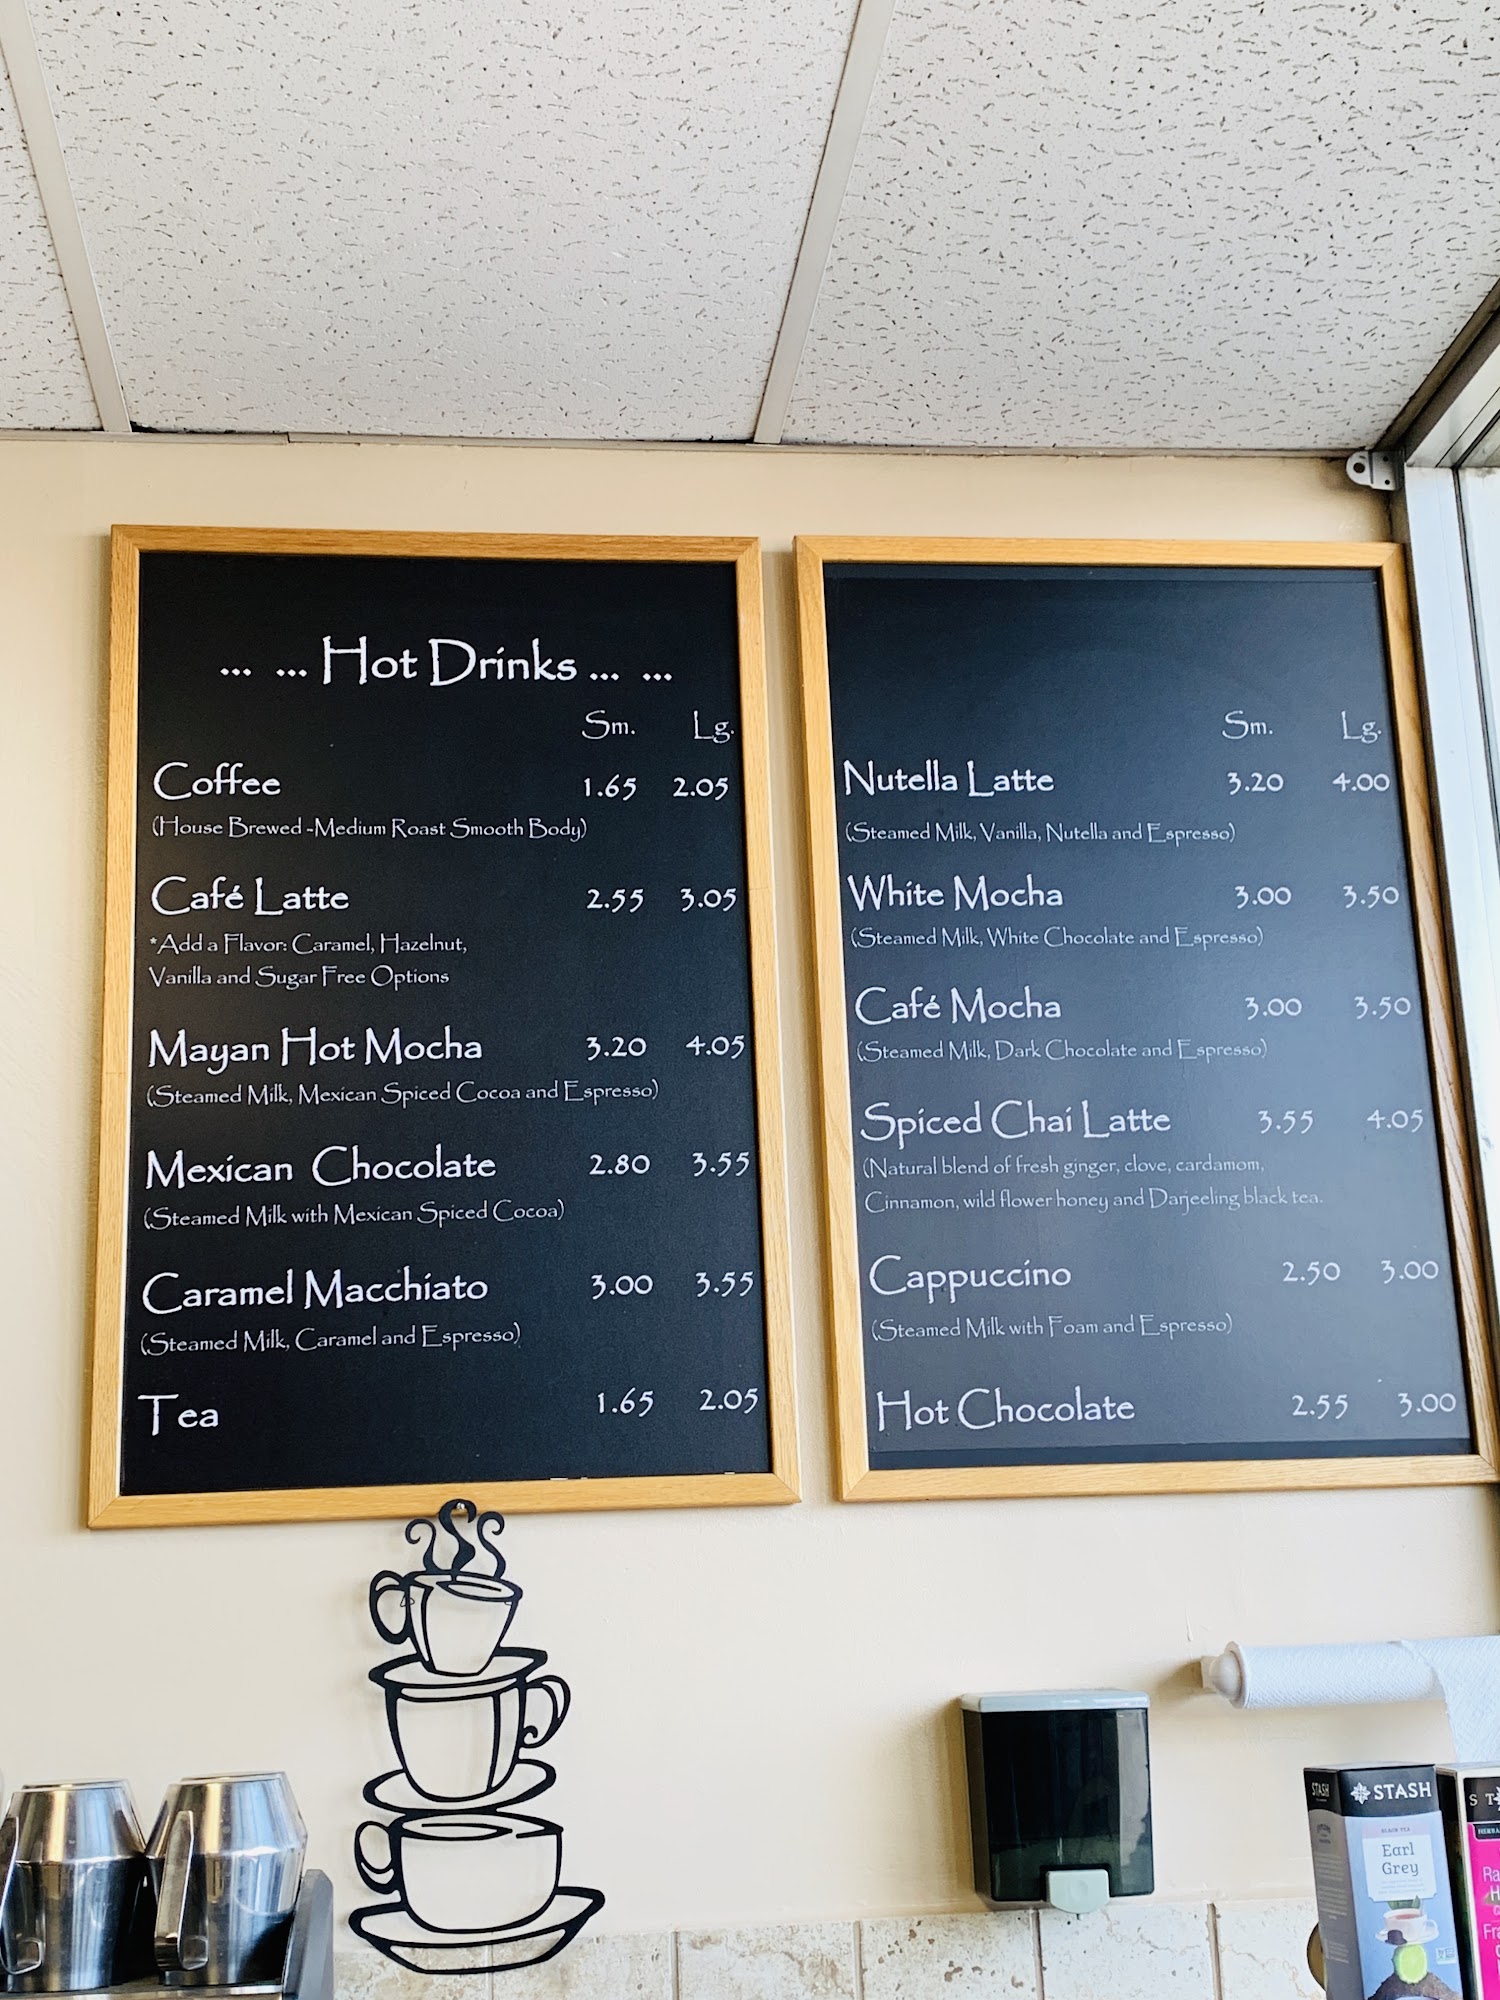 ... ... Hot Drinks ... ...
Sm. Lg.
Coffee 1.65 2.05
(House Brewed -Medium Roast Smooth Body)
Café Latte 2.55 3.05
*Add a Flavor: Caramel, Hazelnut,
Vanilla and Sugar Free Options
Mayan Hot Mocha 3.20 4.05
(Steamed Milk, Mexican Spiced Cocoa and Espresso)
Mexican Chocolate 2.80 3.55
(Steamed Milk with Mexican Spiced Cocoa)
Caramel Macchiato 3.00 3.55
(Steamed Milk, Caramel and Espresso)
Tea 1.65 2.05
Sm. Lg.
Nutella Latte 3.20 4.00
(Steamed Milk, Vanilla, Nutella and Espresso)
White Mocha 3.00 3.50
(Steamed Milk, White Chocolate and Espresso)
Café Mocha 3.00 3.50
(Steamed Milk, Dark Chocolate and Espresso)
Spiced Chai Latte 3.55 4.05
(Natural blend of fresh ginger, clove, cardamom,
Cinnamon, wild flower honey and Darjeeling black tea.
Cappuccino 2.50 3.00
(Steamed Milk with Foam and Espresso)
Hot Chocolate 2.55 3.00
STASH
STASH
BLACK TEA
Earl
Grey